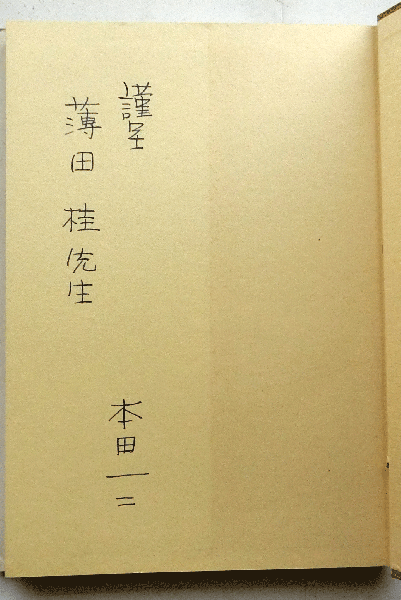 謹呈
薄田 桂先生
本田一二